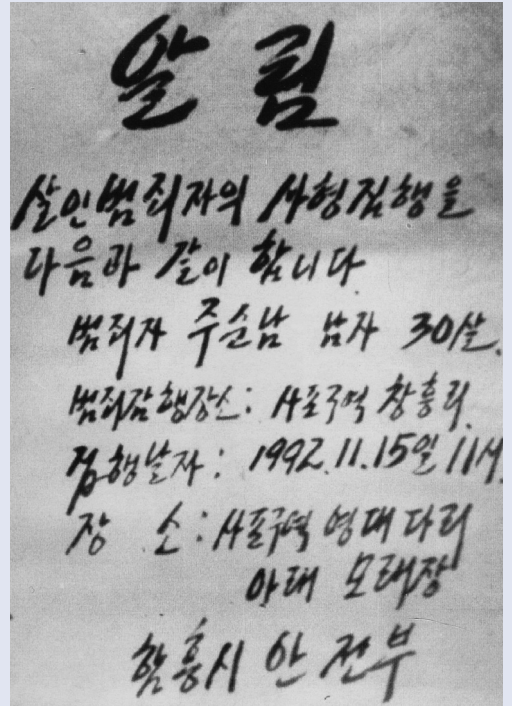 알 림
살인범죄자의 사형집행을
다음과 같이 합니다
범죄자 주순남 남자 30살.
범죄감행장소: 사포구역 창흥리.
집행날자: 1992.11.15일 11시.
장 소: 사포구역 영대다리
아래 모래장
함흥시 안전부